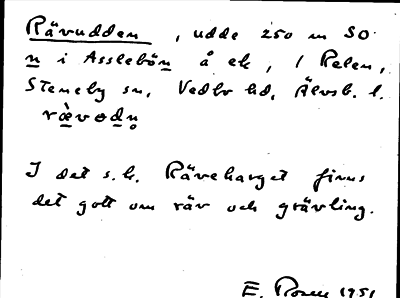 Rävudden, udde 250 m SO
n i Assleb​ön å ek, i Relen,
Steneby sn, Vedbo hd, Älvsb. l.
ræ̀vɵdn̥
I det s.k. Räveharget finns
det gott om räv och grävling.
E. Rosen 1951